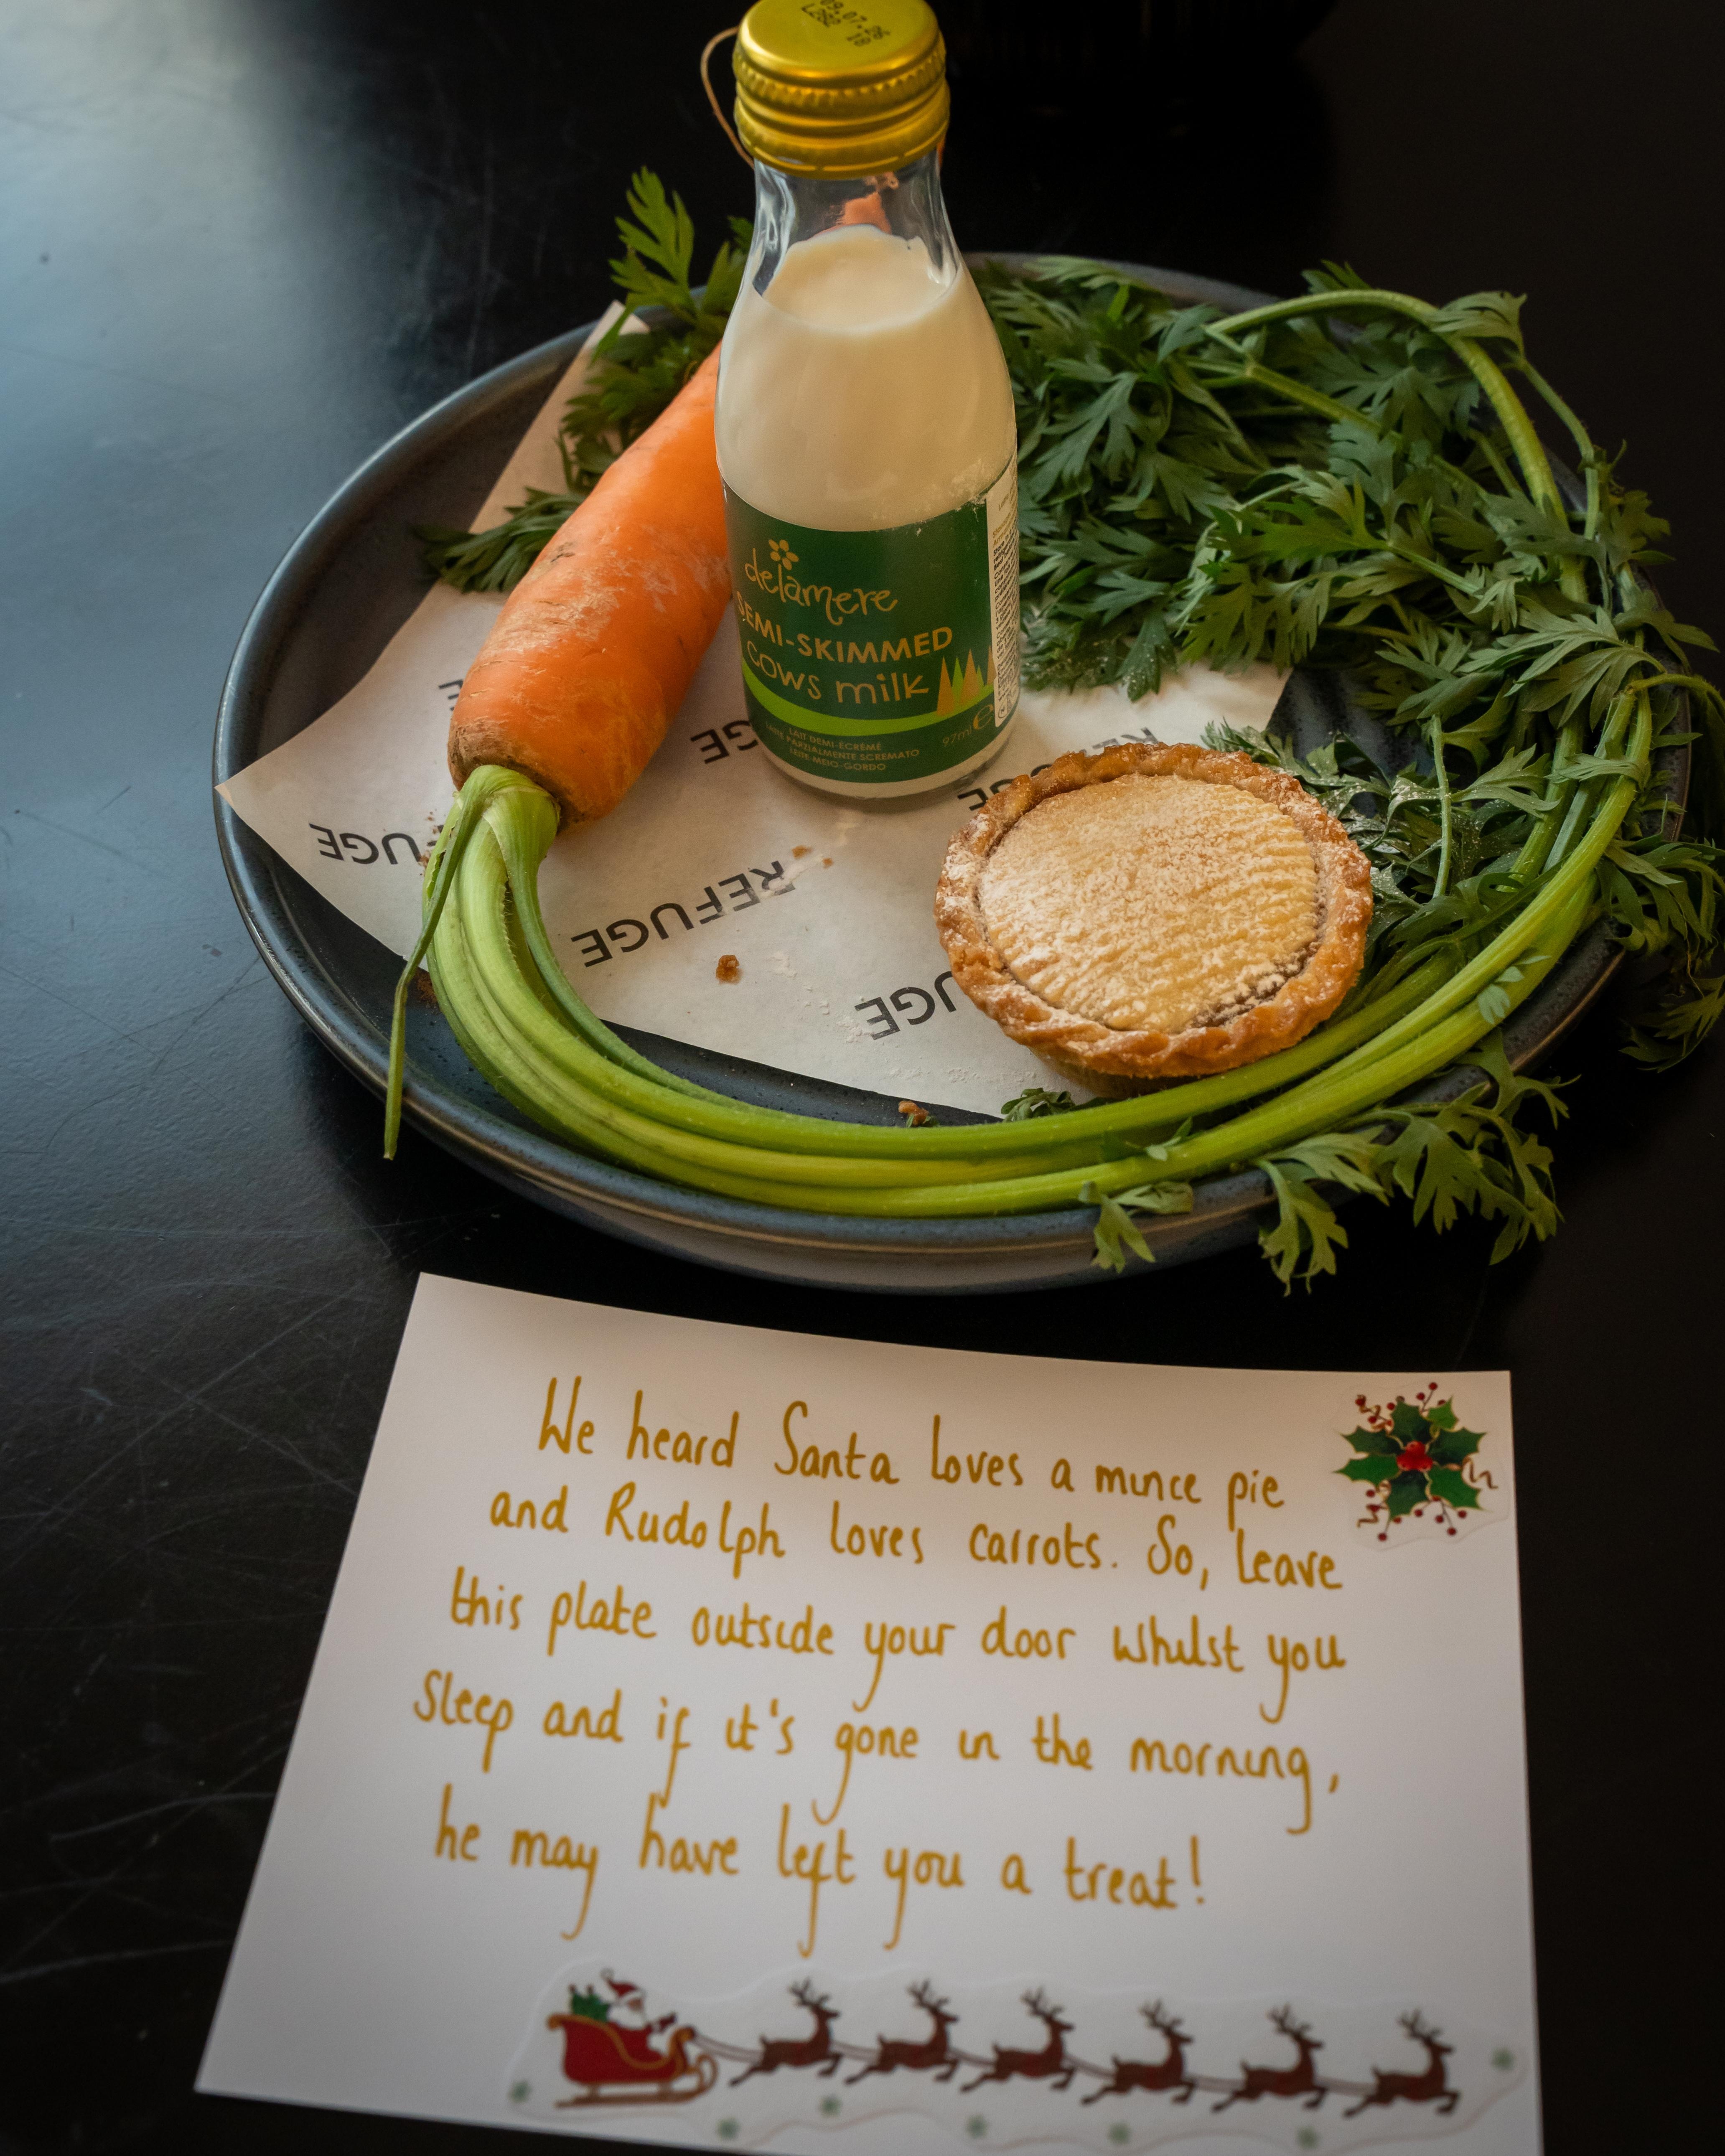 delamere
SEMI-SKIMMED
COWS milk
LAIT DEMI-ÉCRÉMÉ
LATTE PARZIALMENTE SCREMATO
LEITE MEIO-GORDO
97ml e
REFUGE
REFUGE
REFUGE
REFUGE
We heard Santa loves a mince pie
and Rudolph loves carrots. So, leave
this plate outside your door whilst you
sleep and if it's gone in the morning,
he may have left you a treat!